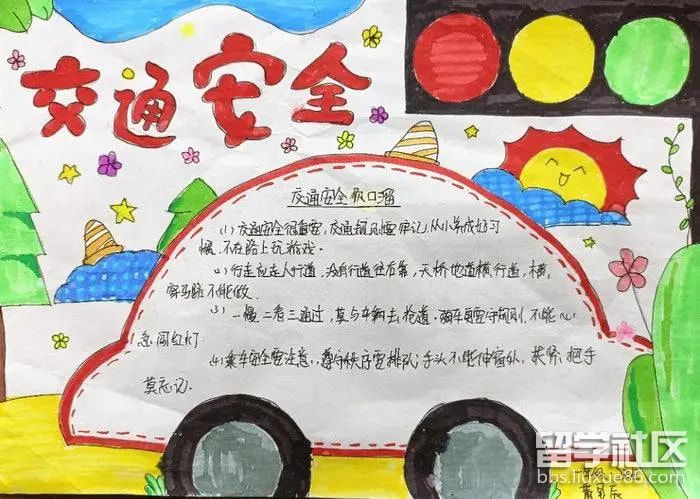 交通安全
交通安全顺口溜
(1) 交通安全很重要,交通规则要牢记,从小养成好习
惯,不在路上玩游戏。
(2) 行走应走人行道,没有行道往右靠,天桥地道横行道,横
穿马路不能做.
(3) 一慢二看三通过,莫与车辆去抢道。骑车更要守规则,不能心
急闯红灯
(4) 乘车安全要注意,遵守秩序要排队;手头不能伸窗外,扶紧把手
莫忘记.
留学社区
bbs.liuxue86.com